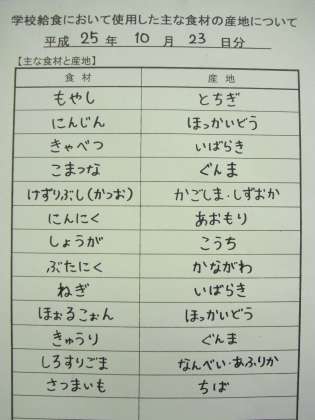 学校給食において使用した主な食材の産地について
平成 25 年 10 月 23 日分
【主な食材と産地】
食材 産地
もやし とちぎ
にんじん ほっかいどう
きゃべつ いばらき
こまつな ぐんま
けずりぶし(かつお) かごしま・しずおか
にんにく あおもり
しょうが こうち
ぶたにく かながわ
ねぎ いばらき
ほぉるこぉん ほっかいどう
きゅうり ぐんま
しろすりごま なんべい・あふりか
さつまいも ちば